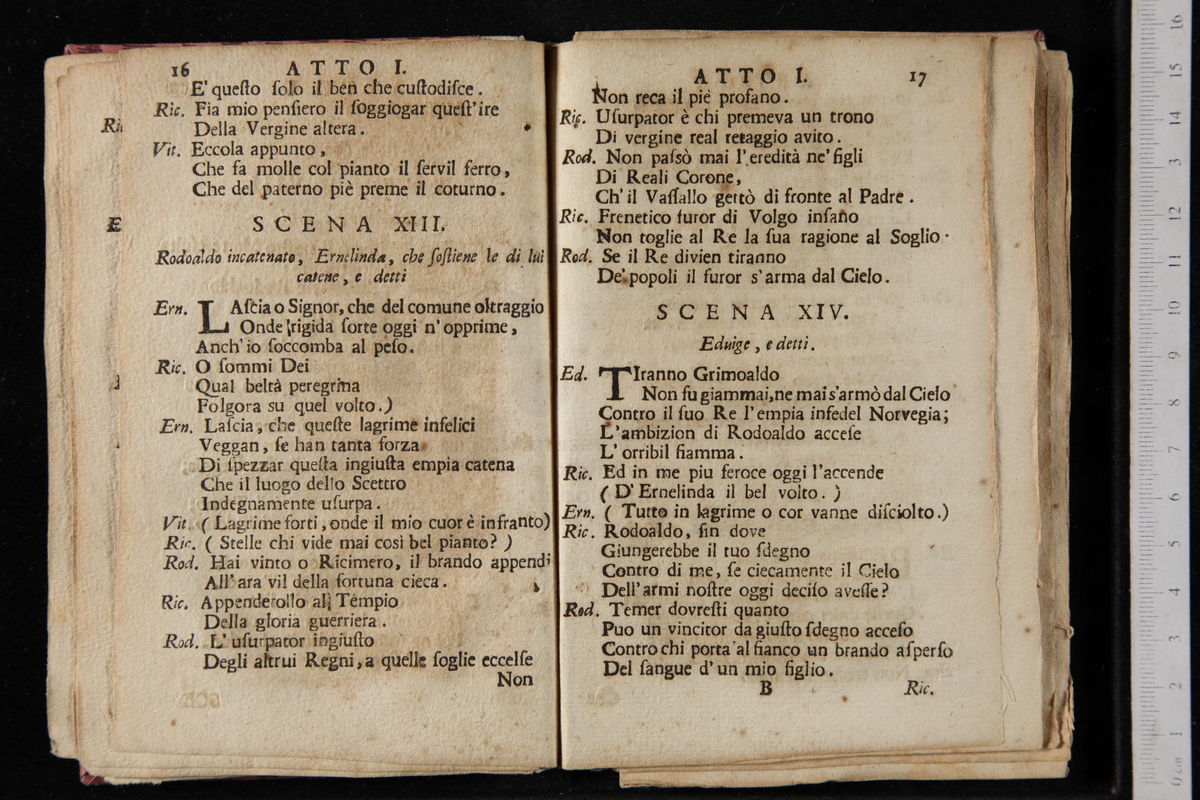 16 ATTO I.
E' queſto ſolo il ben che cuſtodiſce.
Ric. Fia mio penſiero il ſoggiogar queſt'ire
Della Vergine altera.
Vit. Eccola appunto,
Che fa molle col pianto il ſervil ferro,
Che del paterno piè preme il coturno.
SCENA XIII.
Rodoaldo incatenato, Ernelinda, che ſoſtiene le di lui
catene, e detti
Ern. LAſcia o Signor, che del comune oltraggio
Onde rigida ſorte oggi n' opprime,
Anch' io ſoccomba al peſo.
Ric. O ſommi Dei
Qual beltà peregrina
Folgora su quel volto.)
Ern. Laſcia, che queſte lagrime infelici
Veggan, ſe han tanta forza
Di ſpezzar queſta ingiuſta empia catena
Che il luogo dello Scettro
Indegnamente uſurpa.
Vit. (Lagrime forti, onde il mio cuor è infranto)
Ric. (Stelle chi vide mai così bel pianto?)
Rod. Hai vinto o Ricimero, il brando appendi
All' ara vil della fortuna cieca.
Ric. Appenderollo al Tempio
Della gloria guerriera.
Rod. L' uſurpator ingiuſto
Degli altrui Regni, a quelle ſoglie eccelſe
Non
ATTO I. 17
Non reca il piè profano.
Ric. Uſurpator è chi premeva un trono
Di vergine real retaggio avito.
Rod. Non paſsò mai l' eredità ne' figli
Di Reali Corone,
Ch' il Vaſſallo gettò di fronte al Padre.
Ric. Frenetico furor di Volgo inſano
Non toglie al Re la ſua ragione al Soglio.
Rod. Se il Re divien tiranno
De' popoli il furor s' arma dal Cielo.
SCENA XIV.
Eduige, e detti.
Ed. TIranno Grimoaldo
Non fu giammai, ne mai s' armò dal Cielo
Contro il ſuo Re l' empia infedel Norvegia;
L' ambizion di Rodoaldo acceſe
L' orribil fiamma.
Ric. Ed in me piu feroce oggi l' accende
(D' Ernelinda il bel volto.)
Ern. (Tutto in lagrime o cor vanne diſciolto.)
Ric. Rodoaldo, fin dove
Giungerebbe il tuo ſdegno
Contro di me, ſe ciecamente il Cielo
Dell' armi noſtre oggi deciſo aveſſe?
Rod. Temer dovreſti quanto
Puo un vincitor da giuſto ſdegno acceſo
Contro chi porta al fianco un brando aſperſo
Del ſangue d' un mio figlio.
B Ric.